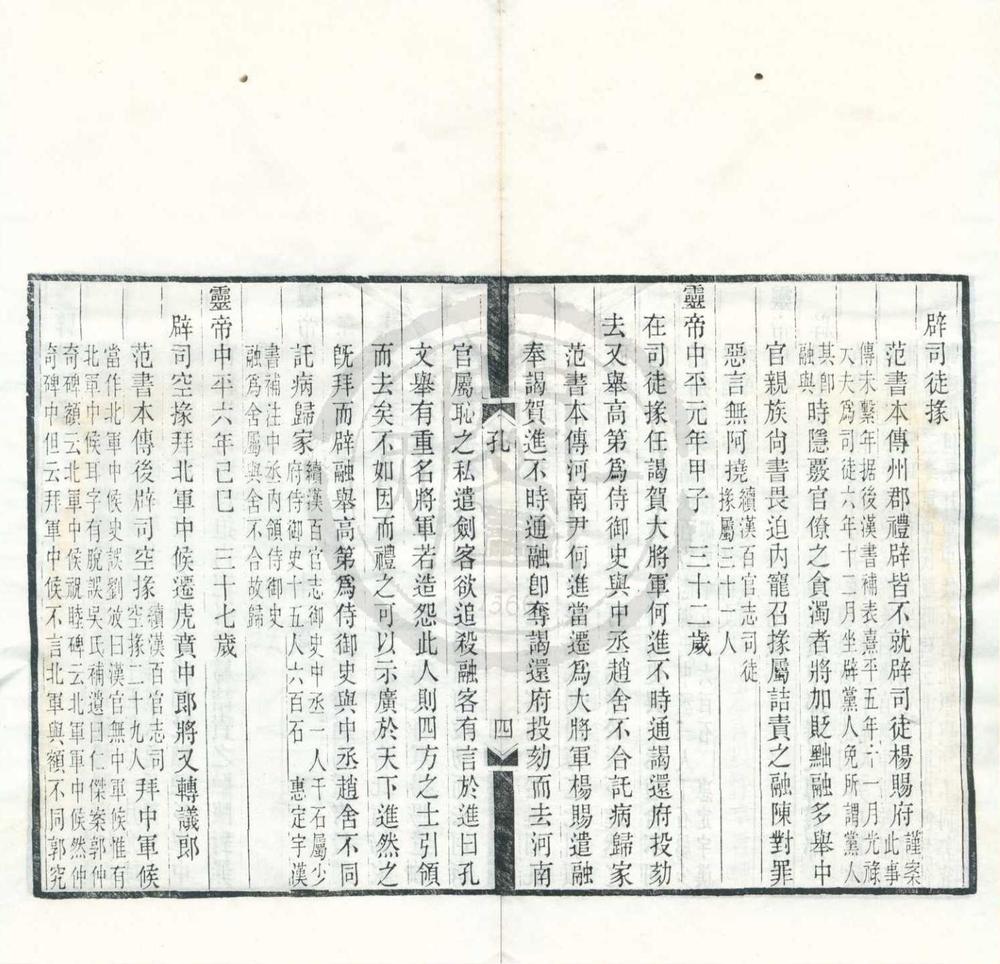 辟司徒掾
范書本傳州郡禮辟皆不就辟司徒楊賜府
謹案此事
傳未繫年据後漢書補表熹平五年十一月光祿
大夫爲司徒六年十二月坐辟黨人免所謂黨人
其卽
融與
時隱覈官僚之貪濁者將加貶黜融多舉中
官親族尙書畏迫內寵召掾屬詰責之融陳對罪
惡言無阿撓
續漢百官志司徒
掾屬三十一人
靈帝中平元年甲子 三十二歲
在司徒掾任謁賀大將軍何進不時通謁還府投劾
去又舉高第爲侍御史與中丞趙舍不合託病歸家
范書本傳河南尹何進當遷爲大將軍楊賜遣融
奉謁賀進不時通融卽奪謁還府投劾而去河南
孔
四
官屬恥之私遣劍客欲追殺融客有言於進曰孔
文舉有重名將軍若造怨此人則四方之士引領
而去矣不如因而禮之可以示廣於天下進然之
旣拜而辟融舉高第爲侍御史與中丞趙舍不同
託病歸家
續漢百官志御史中丞一人千石屬少
府侍御史十五人六百石 惠定宇漢
書補注中丞內領侍御史
融爲舍屬與舍不合故歸
靈帝中平六年己巳 三十七歲
辟司空掾拜北軍中候遷虎賁中郎將又轉議郎
范書本傳後辟司空掾
續漢百官志司
空掾二十九人
拜中軍候
當作北軍中候史誤劉攽曰漢官無中軍候惟有
北軍中候耳字有脫誤吳氏補遺曰仁傑案郭仲
奇碑額云北軍中候祝睦碑云北軍軍中候然仲
奇碑中但云拜軍中候不言北軍與額不同郭究